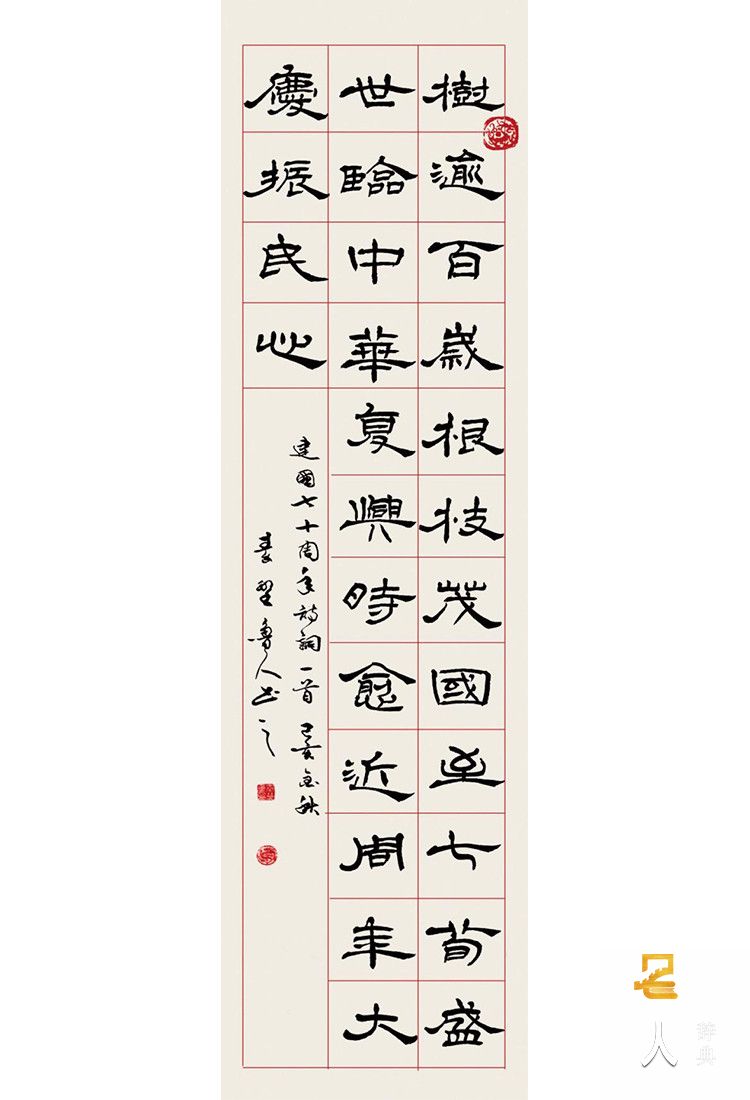 樹逾百歲根枝茂國至七旬盛
世臨中華复興時愈近周年大
慶振民心
建國七十周年詩詞一首 己亥金秋
魯人書之
人
辞典